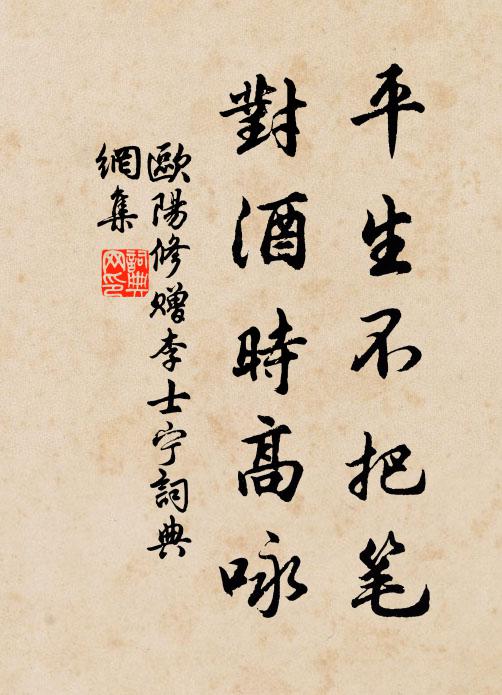 平生不把笔
對酒時高咏
歐陽修赠李士宁詞典
網集
詞典
网印